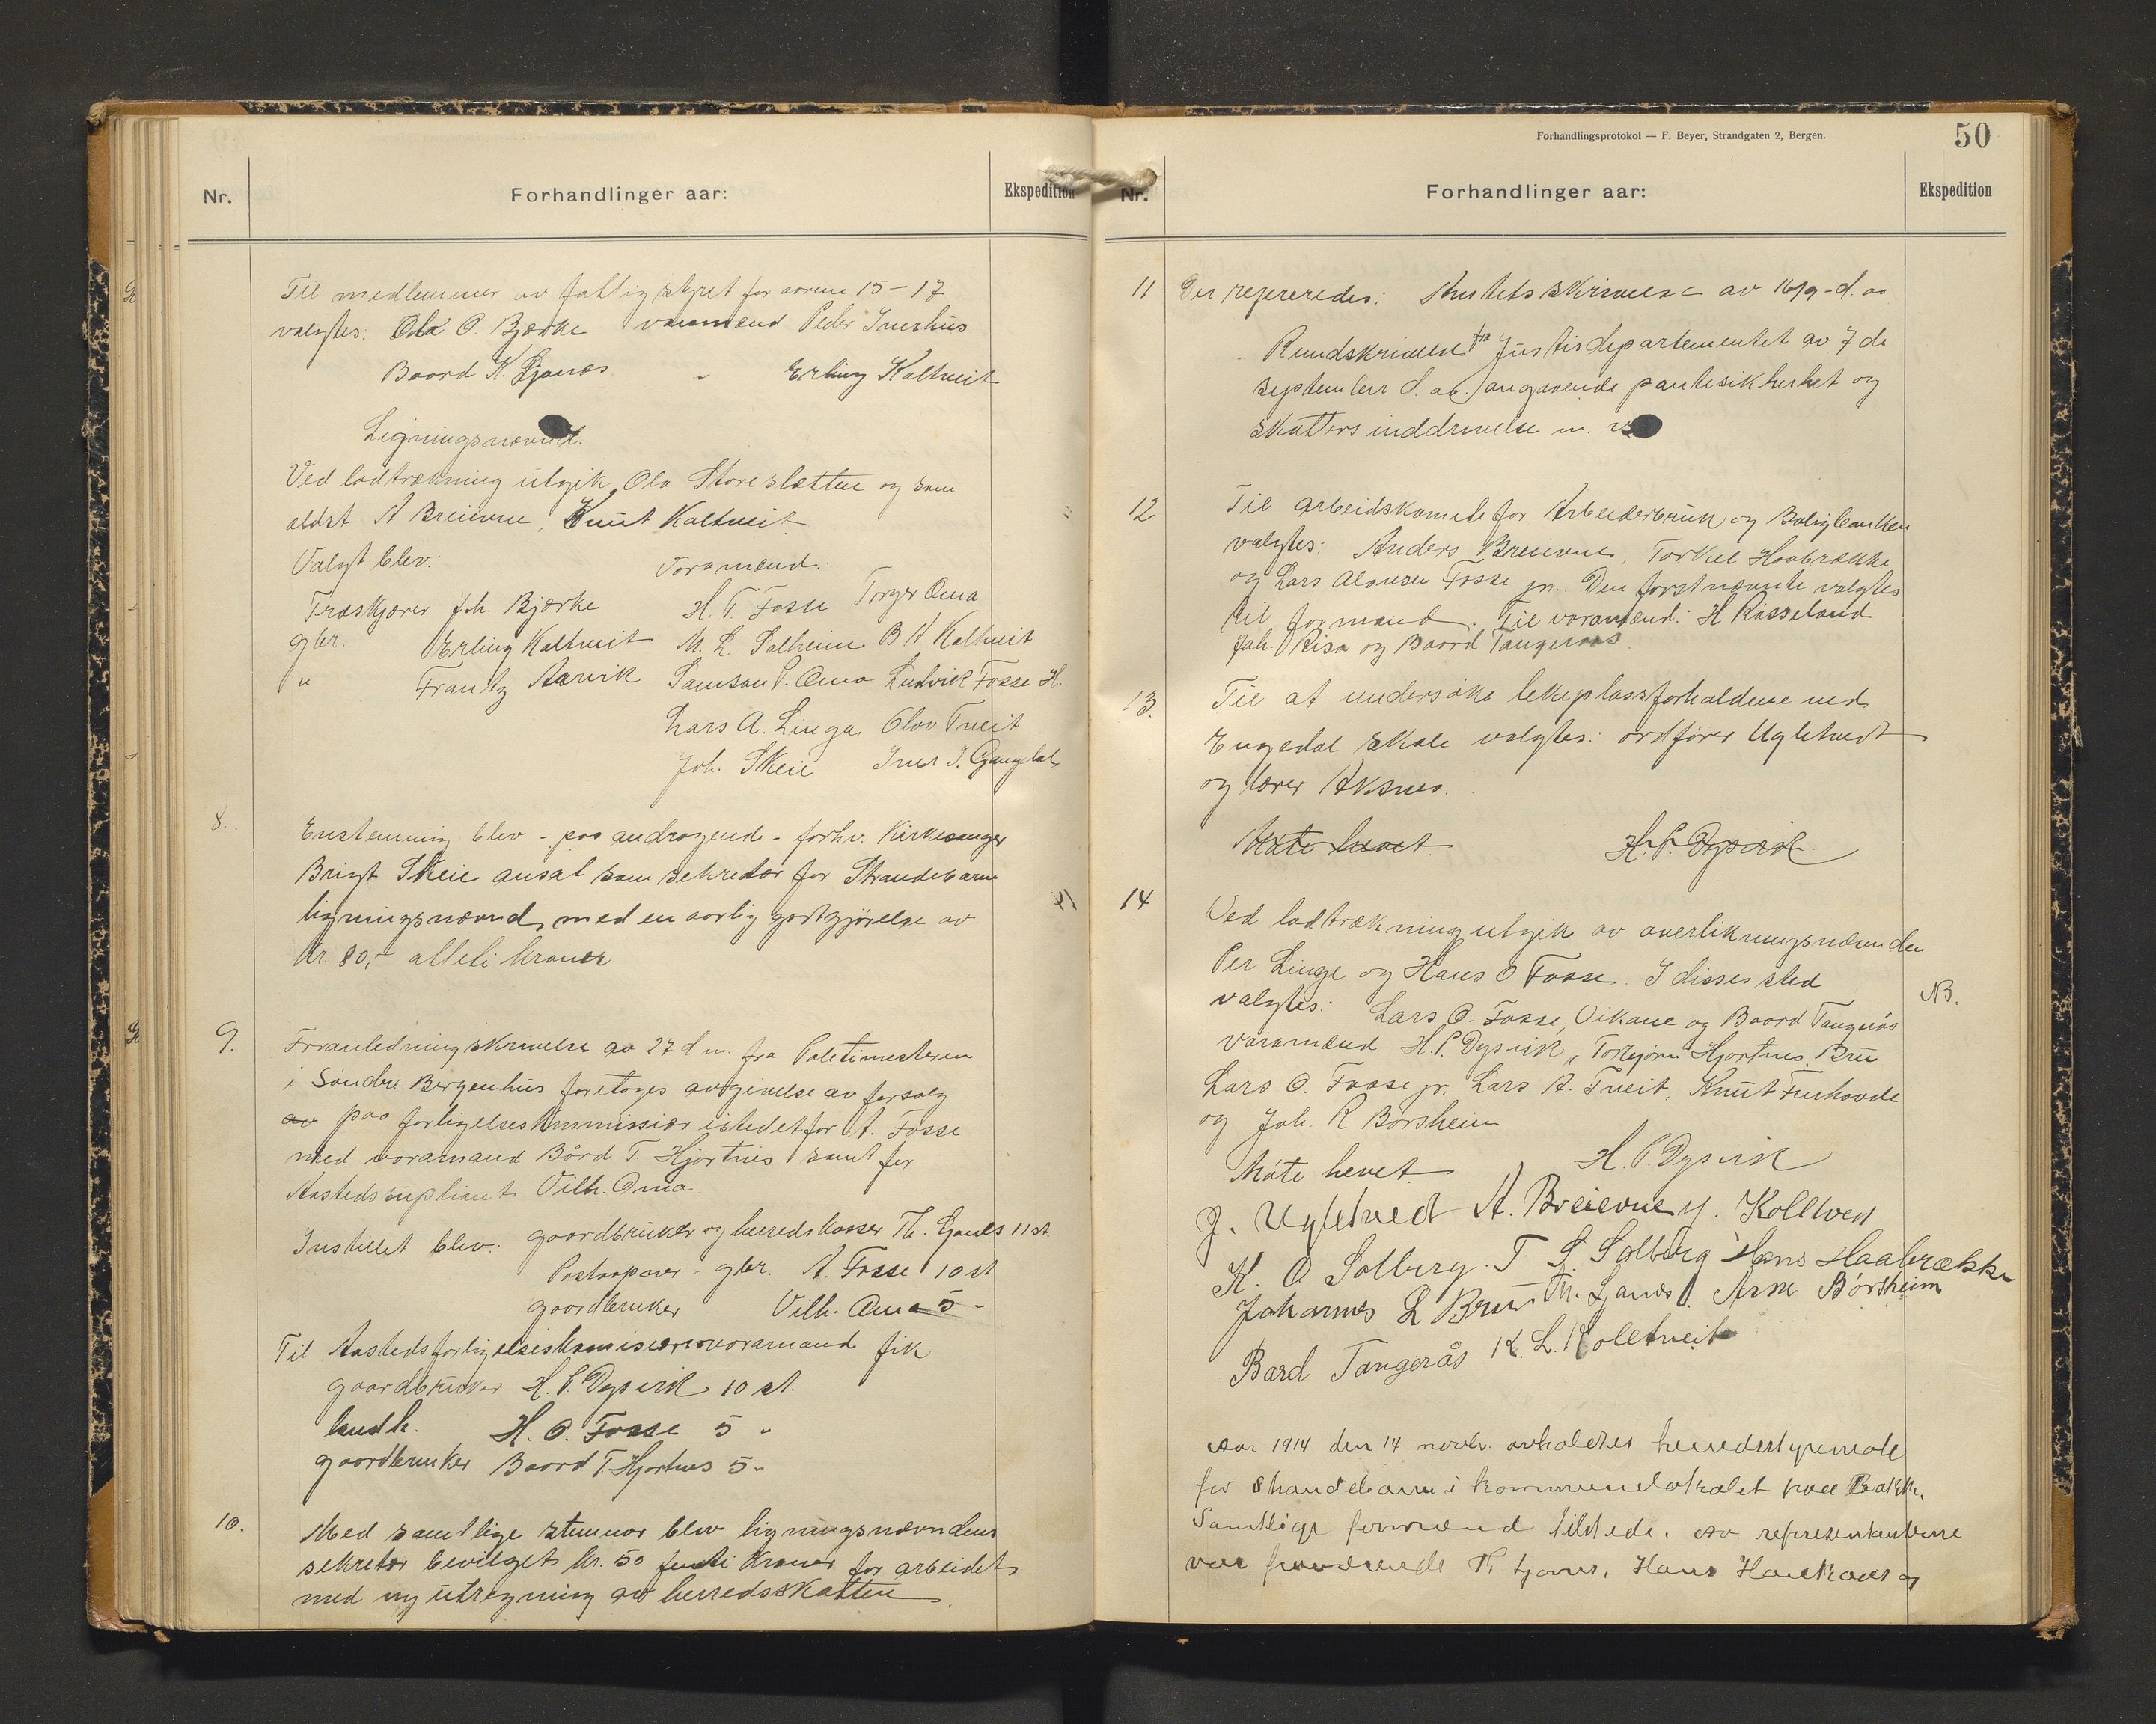 Nr.
Forhandlinger aar:
Ekspedition
Til medlemmer av fattigstyret for aarene 15-17
valgtes: Ola O. Bjørke varamænd Peder Inerhus
Baard K. Ljones " Erling Kaltveit
Ligningsnævnd.
Ved lodtrækning utgik Ola Storesletten og som
ældst A Breievne, Knut Kaltveit
Valgt blev: Varamænd:
Træskjærer Joh. Bjørke H. T. Fosse Torger Oma
gbr. Erling Kaltveit M. L. Solheim B K. Kaltveit
" Frantz Aarvik Samson P. Oma Ludvik Fosse H.
Lars A. Linga Olav Tveit
Joh. Skeie Iver J. Gangdal
8. Enstemmig blev - paa andragende - forhv. Kirkesanger
Brigt Skeie ansat som sekretær for Strandebarm
ligningsnævnd, med en aarlig godtgjørelse av
Kr. 80,- otteti kroner
9. Franledning skrivelse av 27 d.m. fra Politimesteren
i Søndre Bergenhus foretoges avgivelse av forslag
av paa forligelseskommissær istedetfor A. Fosse
med varamand Bård T. Hjortnes samt for
Aastedssupliant Vilh. Oma.
Instillet blev: gaardbruker og herredskasser Th. Ljones 11 st.
Postaapner - gbr. A. Fosse 10 st
gaardbruker Vilh. Oma 5 -
Til Aastedsforligelseskomisærvaramand fik
gaardbruker H. P. Dysvik 10 st.
landh. H. O. Fosse 5 "
gaardbruker Baard T. Hjortnes 5 "
10. Med samtlige stemmer blev ligningsnævndens
sekretær bevilget kr. 50 femti Kroner for arbeidet
med ny utregning av herredsskatten.
Forhandlingsprotokol — F. Beyer, Strandgaten 2, Bergen.
50
Nr.
Forhandlinger aar:
Ekspedition
11 Der refereredes: Amtets skrivelse av 16/9 d. as
Rundskrivelse fra Justisdepartementet av 7de
september d. aa. angaaende pantesikkerhet og
skatters inddrivelse m. v.
12 Til arbeidskomite for Arbeiderbruk og Boligbanken
valgtes: Anders Breievne, Torkel Haabrække
og Lars Olausen Fosse jr. Den førstnævnte valgtes
til formand. Til varamænd: H Risseland
Joh. Risa og Baard Tangeraas.
13. Til at undersøke lekeplassforholdene ved
Engedal skole valgtes: ordfører Ugletvedt
og lærer Aksnes.
Møte hævet H. P. Dysvik.
14 Ved lodtrækning utgik av overlikningsnævnden
Per Linge og Hans O Fosse. I disses sted
valgtes: Lars O. Fosse, Vikane og Baard Tangerås
NB.
varamænd H. P. Dysvik, Torbjørn Hjortnes, Bru
Lars O. Fosse jr. Lars A. Tveit, Knut Furhovde
og Joh. R Børsheim
Møte hevet. H. P. Dysvik
J. Ugletvedt A. Breievne M. Kolltveit
K. O Solberg. T S. Solberg Hans Haabrække
Johannes L Bru Th. Ljones Arne Børsheim
Bård Tangerås K. L. Koltveit
Aar 1914 den 14 novbr. avholdtes herredsstyremøte
for Strandebarm i kommunelokalet paa Bakke.
Samtlige formænd tilstede. Av representanterne
var fraværende Th Ljones, Hans Haukaas og